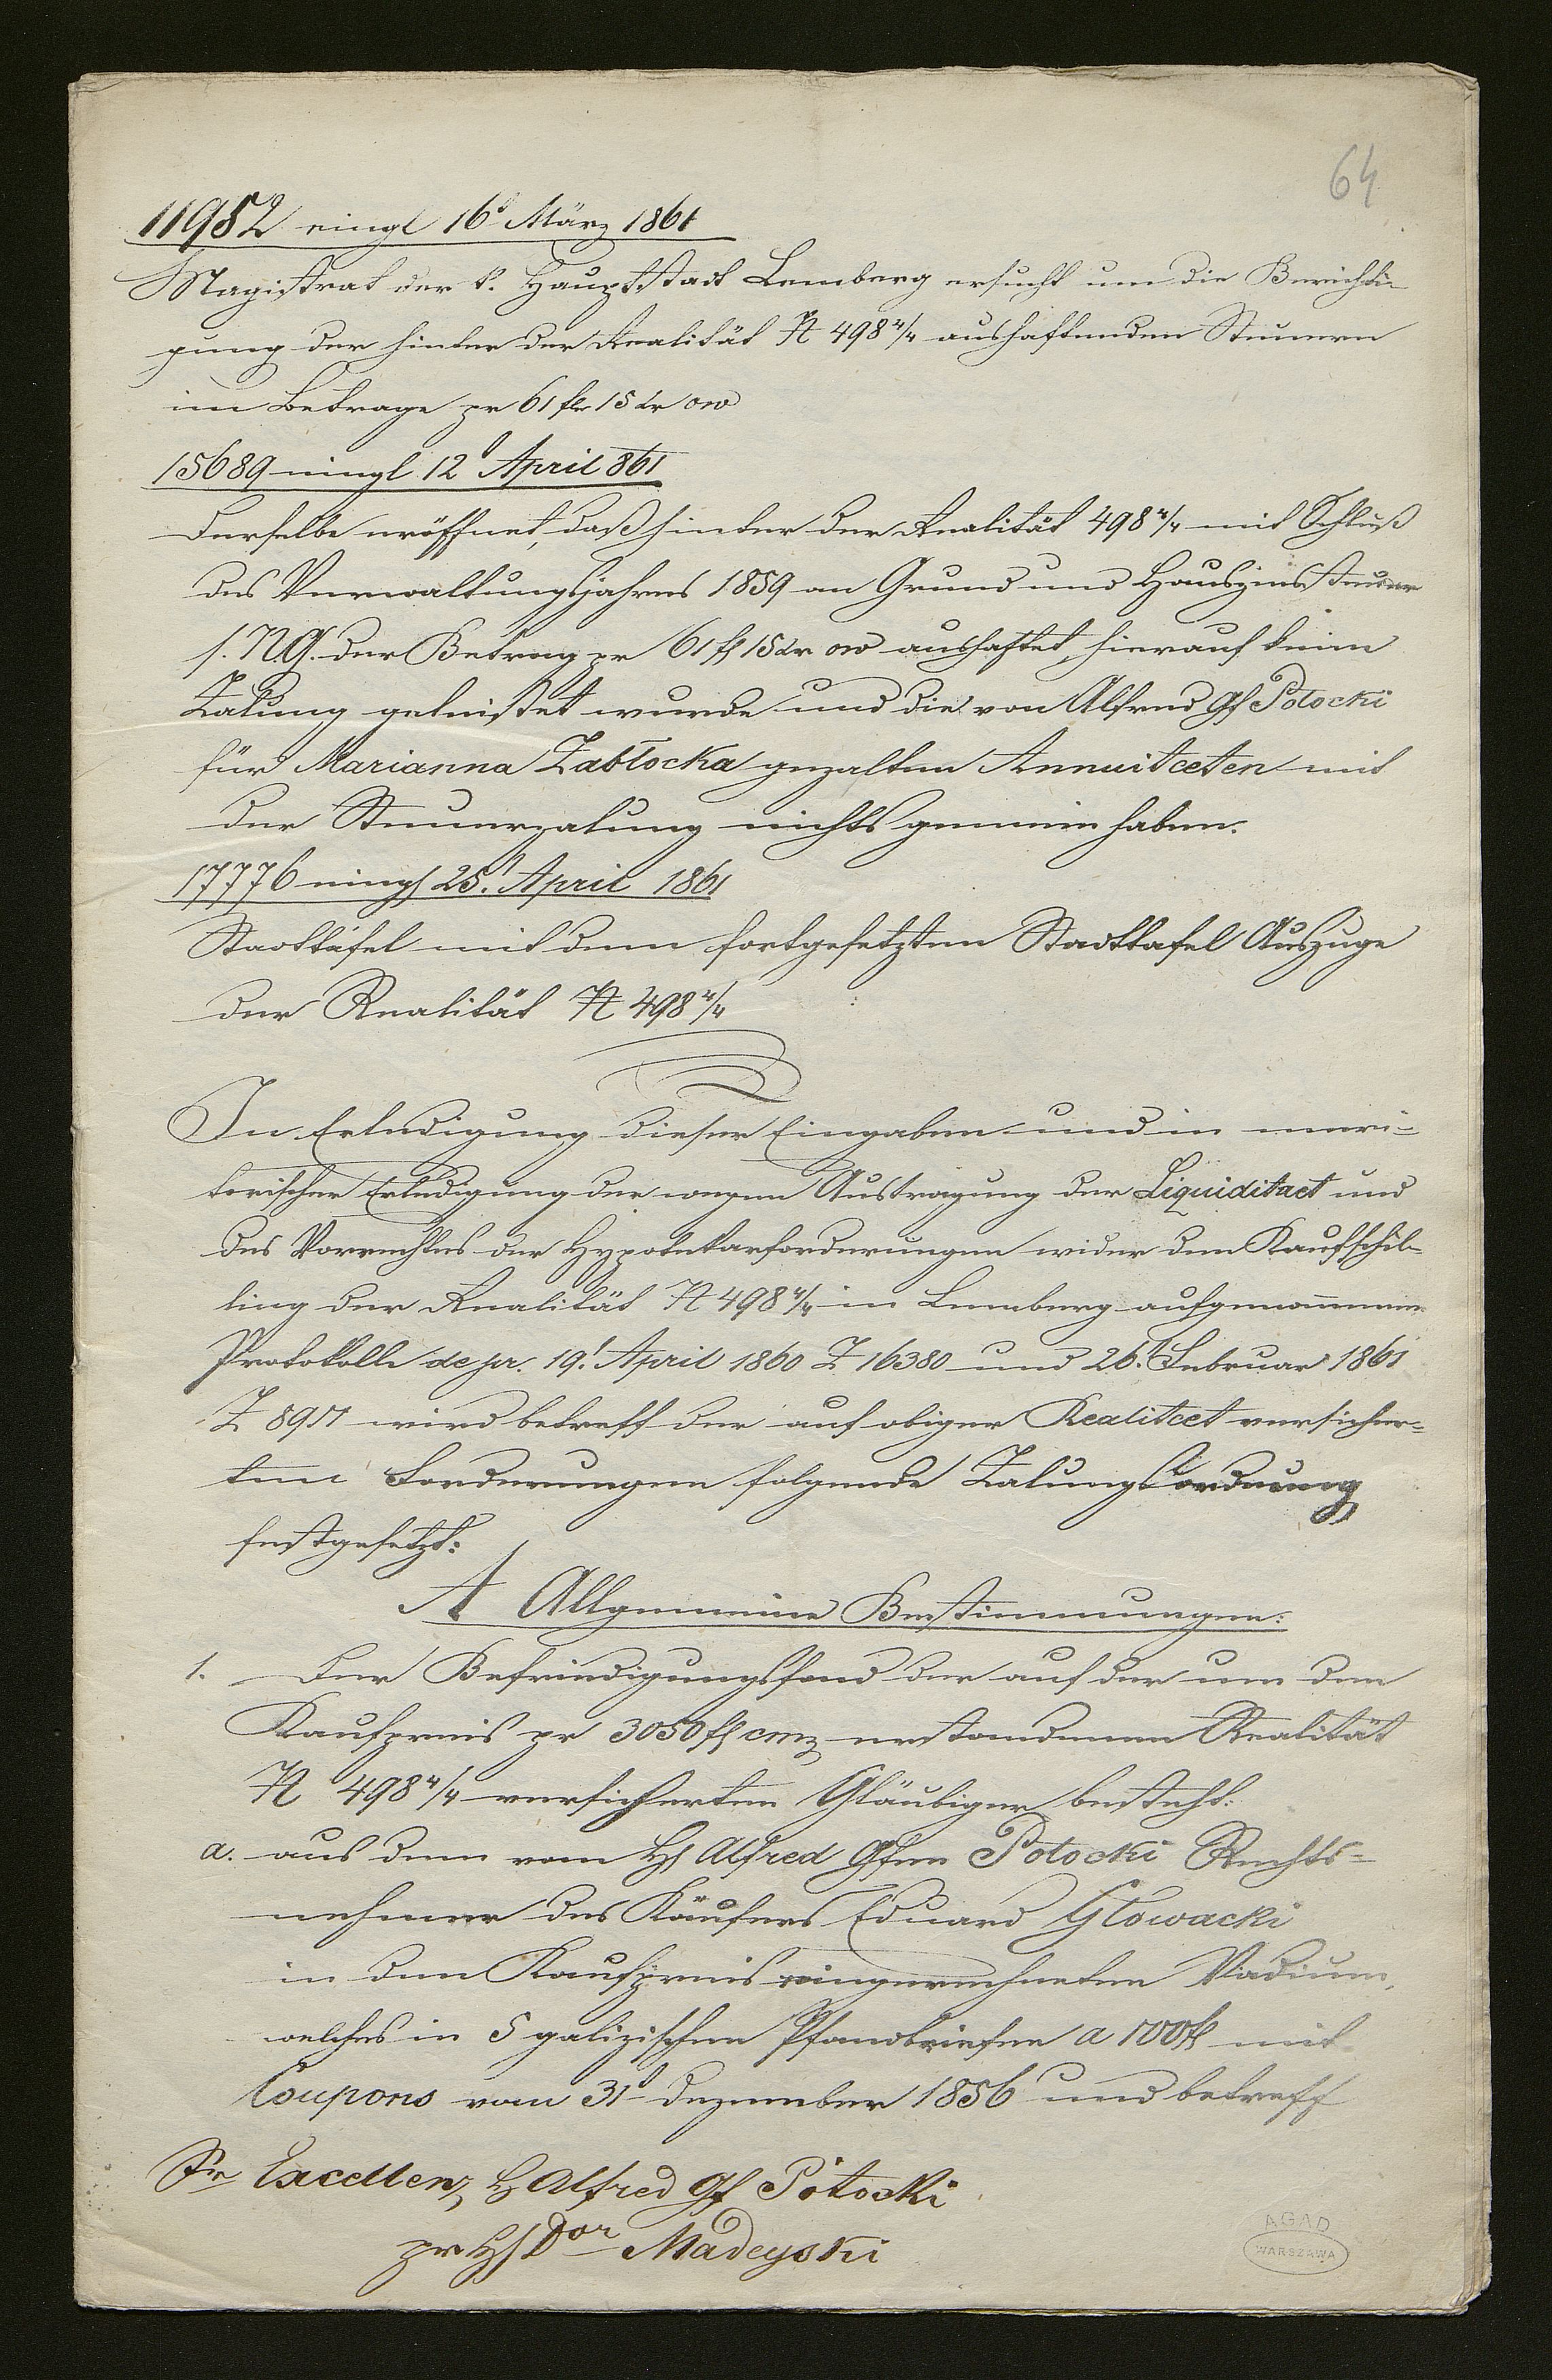 64
11952 eingl 16t März 1861
Magistrat der k. Hauptstadt Lemberg ersucht um die Berichti-
gung der hinter der Realität N 498 4/4 aushaftenden Steuern
im Betrage pr 61 fl 15 kr öw
15689 eingl 12t April 861
Derselbe eröffnet, daß hinter der Realität 498 4/4 mit Schluß
des Verwaltungsjahres 1859 an Grund und Hauszinssteuer
s. N.G. der Betrag pr 61 fl 15 kr öw aushaftet, hierauf keine
Zalung geleistet wurde und die von Alfred Gf Potocki
für Marianna Zabłocka gezalten Annuitaeten mit
der Steuerzalung nichts gemein haben.
17776 eingl 25t April 1861
Stadttafel mit dem fortgesetzten Stadttafel Auszuge
der Realität N 498 4/4
In Erledigung dieser Eingaben und in meri-
torischer Erledigung der wegen Austragung der Liquiditaet und
des Vorrechtes der Hypotekarforderungen wider den Kaufschil-
ling der Realität N 498 4/4 in Lemberg aufgenommenen
Protokolle de pr. 19t April 1860 Z 16380 und 26t Februar 1861
Z 8951 wird betreff der auf obiger Realitaet versicher-
ten Forderungen folgende Zalungsordnung
festgesetzt:
A Allgemeine Bestimmungen:
1. Der Befriedigungsfond der auf der um den
Kaufpreis pr 3050 fl cmz erstandenen Realität
N 498 4/4 versicherten Gläubiger besteht:
a. aus dem vom H Alfred Gfen Potocki Rechts-
nehmer des Käufers Eduard Głowacki
in den Kaufpreis eingerechneten Vadium,
welches in 5 galizischen Pfandbriefen a 100 fl mit
Coupons vom 31t Dezember 1856 und betreff
Sr Excellenz H Alfred Gf Potocki
pr H Dor Madeyski
AGAD
WARSZAWA